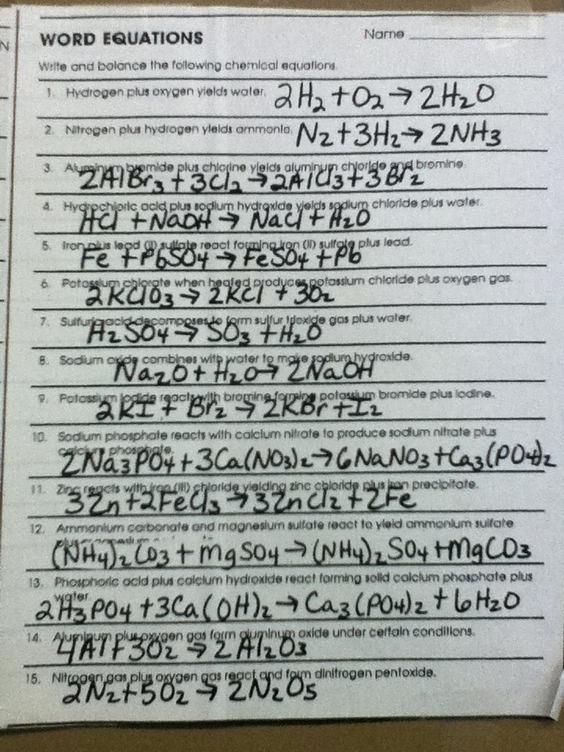 N
WORD EQUATIONS Name
Write and balance the following chemical equations.
1. Hydrogen plus oxygen yields water. 2H₂ + O₂ → 2H₂O
2. Nitrogen plus hydrogen yields ammonia. N₂ + 3H₂ → 2NH₃
3. Aluminum bromide plus chlorine yields aluminum chloride and bromine.
2AlBr₃ + 3Cl₂ → 2AlCl₃ + 3Br₂
4. Hydrochloric acid plus sodium hydroxide yields sodium chloride plus water.
HCl + NaOH → NaCl + H₂O
5. Iron plus lead (II) sulfate react forming iron (II) sulfate plus lead.
Fe + PbSO₄ → FeSO₄ + Pb
6. Potassium chlorate when heated produces potassium chloride plus oxygen gas.
2KClO₃ → 2KCl + 3O₂
7. Sulfuric acid decomposes to form sulfur trioxide gas plus water.
H₂SO₄ → SO₃ + H₂O
8. Sodium oxide combines with water to make sodium hydroxide.
Na₂O + H₂O → 2NaOH
9. Potassium iodide reacts with bromine forming potassium bromide plus iodine.
2KI + Br₂ → 2KBr + I₂
10. Sodium phosphate reacts with calcium nitrate to produce sodium nitrate plus
calcium phosphate.
2Na₃PO₄ + 3Ca(NO₃)₂ → 6NaNO₃ + Ca₃(PO₄)₂
11. Zinc reacts with iron (III) chloride yielding zinc chloride plus iron precipitate.
3Zn + 2FeCl₃ → 3ZnCl₂ + 2Fe
12. Ammonium carbonate and magnesium sulfate react to yield ammonium sulfate
plus magnesium
(NH₄)₂CO₃ + MgSO₄ → (NH₄)₂SO₄ + MgCO₃
13. Phosphoric acid plus calcium hydroxide react forming solid calcium phosphate plus
water.
2H₃PO₄ + 3Ca(OH)₂ → Ca₃(PO₄)₂ + 6H₂O
14. Aluminum plus oxygen gas form aluminum oxide under certain conditions.
4Al + 3O₂ → 2Al₂O₃
15. Nitrogen gas plus oxygen gas react and form dinitrogen pentoxide.
2N₂ + 5O₂ → 2N₂O₅